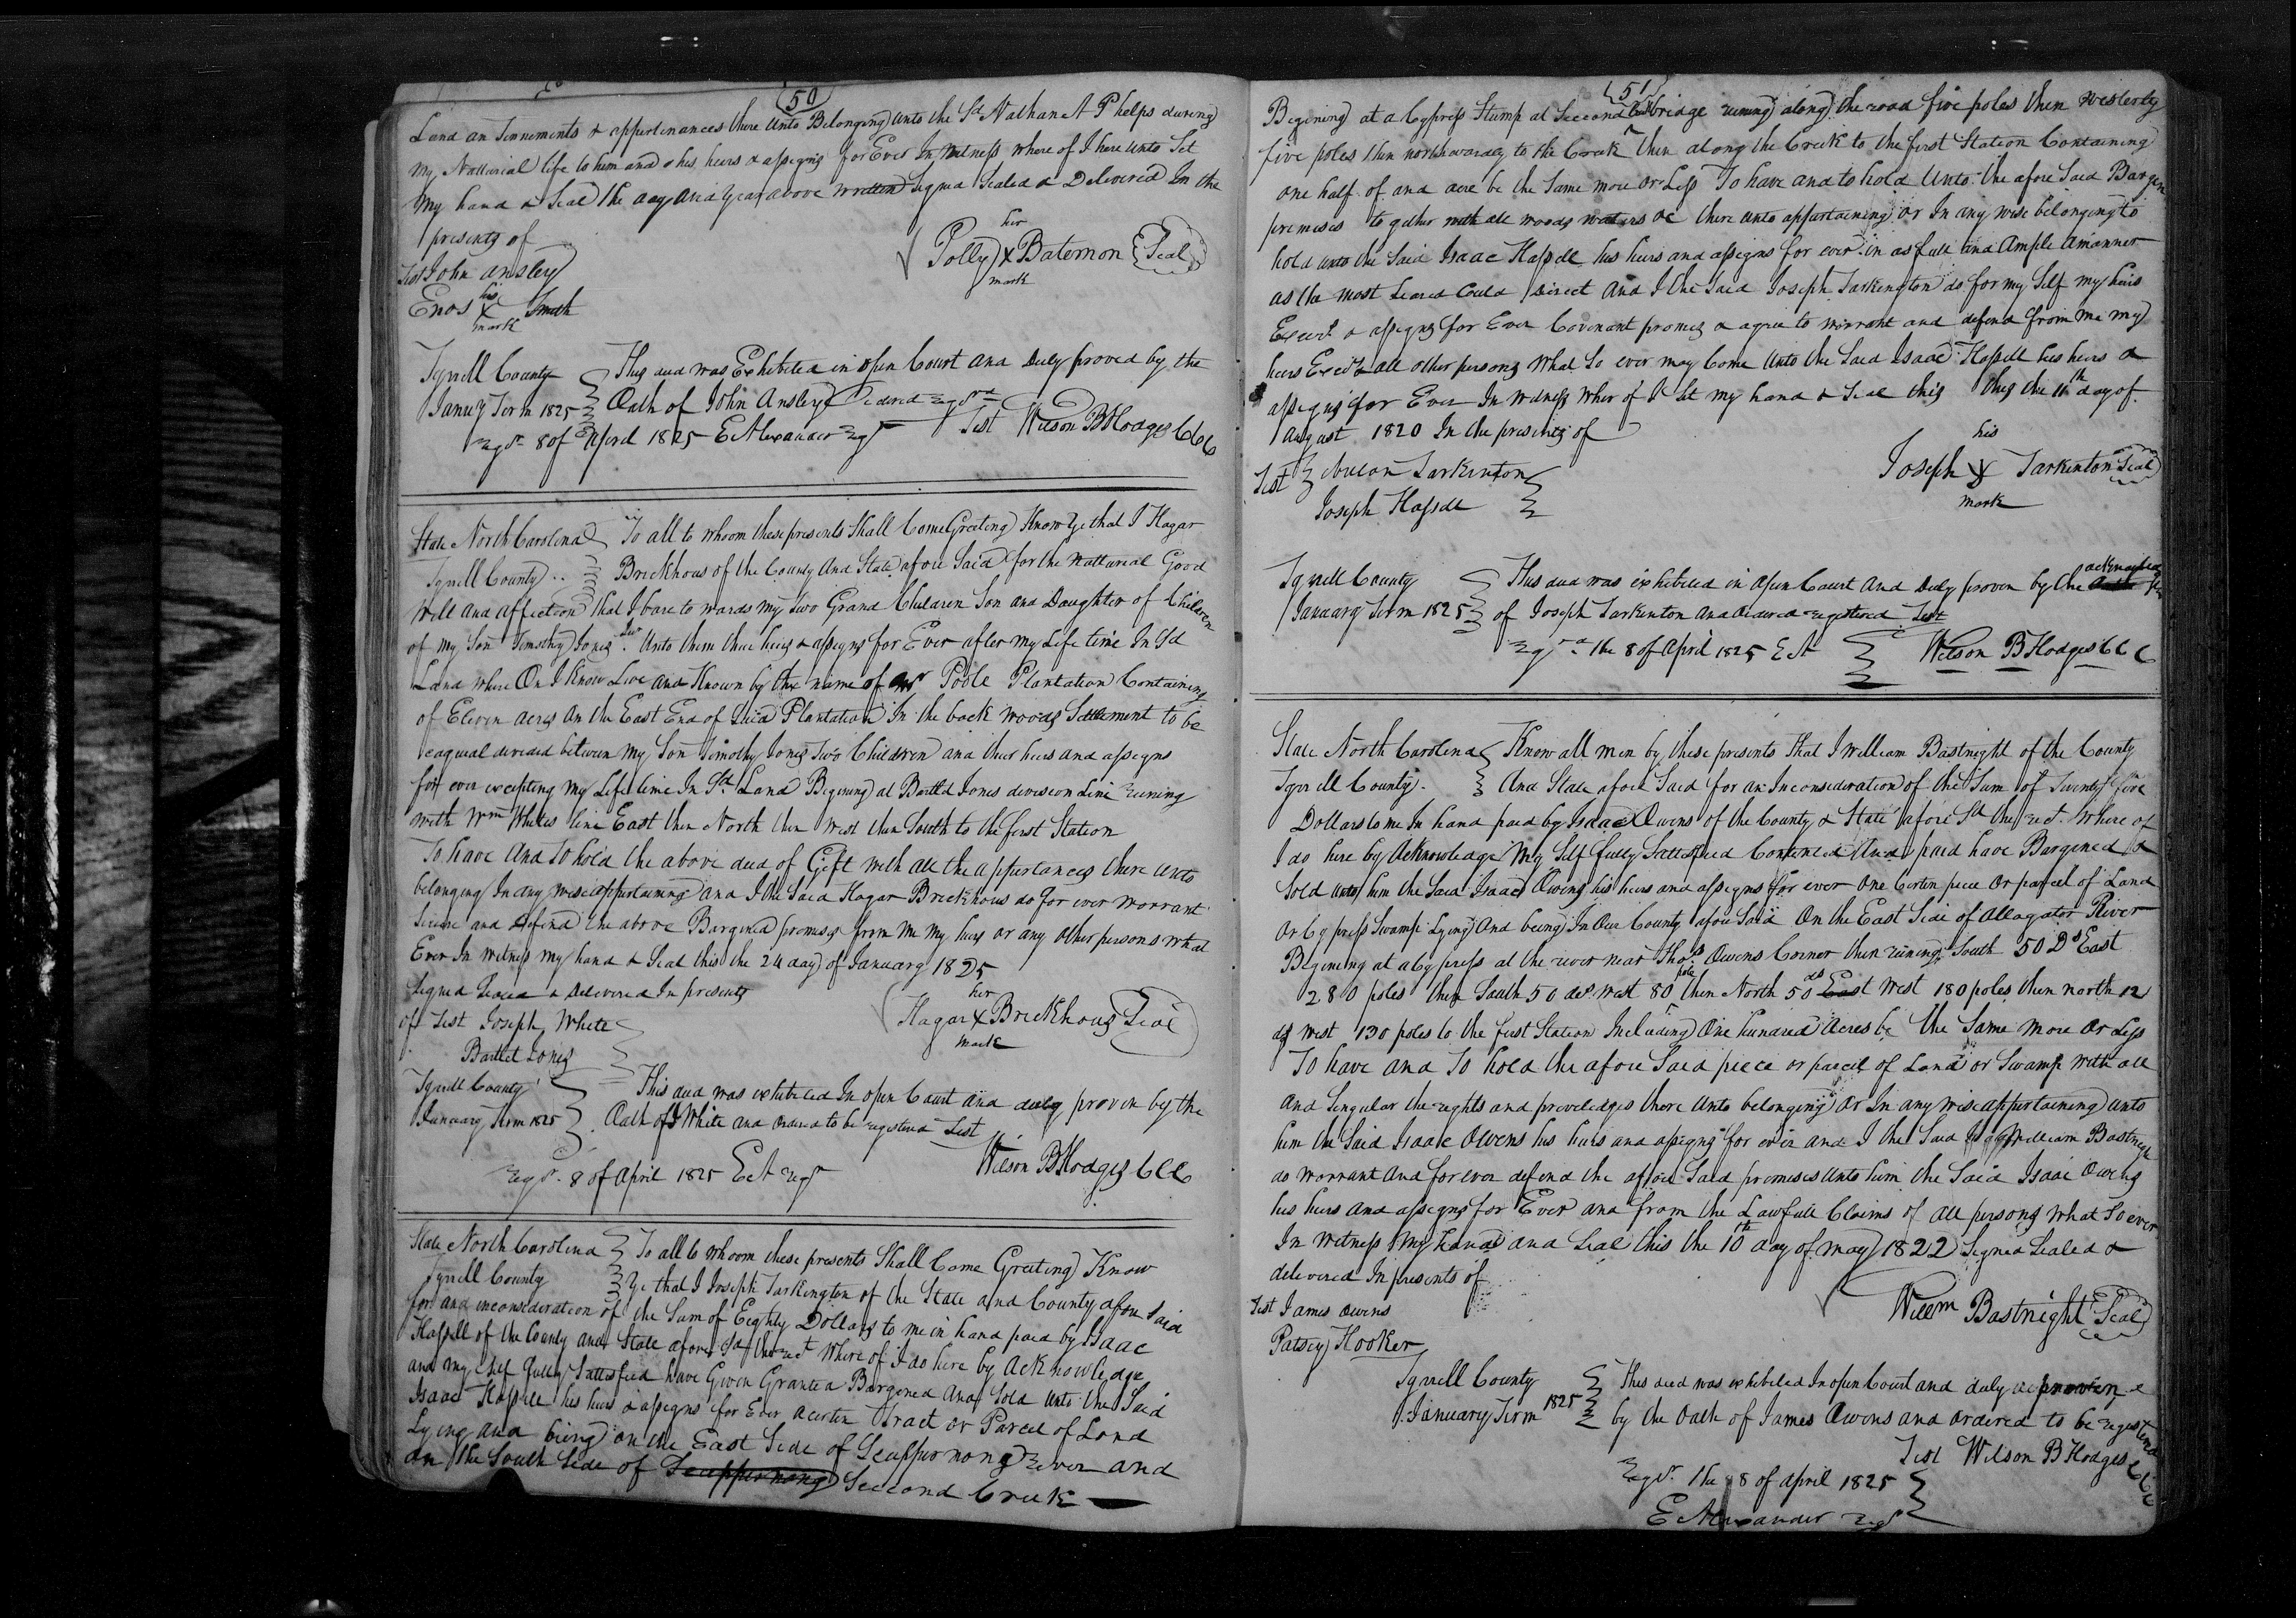 (50)
Land an Tennements & appurtenances there Unto Belonging unto the Sd Nathan A Phelps during
my Natturial life to him and & his heirs & assegns for Ever In Witness where of I here unto Set
my hand & Seal the day and year above written Signed Sealed & Delivered In the
presents of
her
Polly X Batemon Seal
mark
Test John Ansley
Enos his X Smith
mark
Tyrrell County This deed was Exhibited in open Court and Duly proved by the
Janury Term 1825 Oath of John Ansley Ordered
Regd. 8 of April 1825 E Alexander Regr Test Wilson B Hodges CCC
State North Carolina To all to whoom these presents Shall Come Greeting Know Ye that I Hagar
Tyrrell County .. Brickhous of the County And State afore Said for the natturial Good
Will and affection that I bare to wards my Two Grand Children Son and Daughter of Children
of my Son Timothy Jones Unto them thire heirs & assegns for Ever after my Life time In Sd
Land where On I Know Live and Known by the name of Poole Plantation Containing
of Eleven acres On the East End of Said Plantation In the back woods Settlement to be
eaqual devided between my Son Timothy Jones Two Children and ther heirs and assegns
for ever excepting my Life time In Sd. Land Begining at Bartled Jones devision Line runing
with Wm Whites line East then North then West then South to the first Station
To have And To hold the above deed of Gift with all the appurtances there unto
belonging In any wise appurtaining and I the Said Hagar Brickhous do for ever worrant
Secure and defend the above Bargined premises from me my heirs or any other persons what
Ever In witness my hand & Seal this the 24 day of January 1825
Signed Sealed & Delivered In presents
her
Hagar X Brickhous Seal
mark
off Test Joseph White
Bartlet Jones
Tyrrell County This deed was exhibited In open Court and duly proven by the
January Term 1825 Oath of J White and ordered to be registered Test
Regd. 8 of April 1825 E A Regr Wilson B Hodges CCC
State North Carolina To all to whoom these presents Shall Come Greeting Know
Tyrrell County Ye that I Joseph Tarkington of the State and County afore Said
for and inconsideration of the Sum of Eighty Dollars to me in hand paid by Isaac
Hassell of the County and State afore Sd the rect where of I do here by Acknowledge
and my Self fully Sattesfied have Given Granted Bargened And Sold unto the Said
Isaac Hassell his heirs & assegns for Ever acerten Tract or Parcel of Land
Lying and being on the East Side of Scuppurnong River and
on the South Side of Scuppurnong Second Creek
(51)
Begining at a Cypress Stump at Second bridge runing along the road five poles then westerly
five poles then northwardy to the Creek then along the Creek to the first Station Containing
one half of and acre be the Same more or Less To have and to hold Unto the afore Said Bargen
premises to gether with all woods waters &c there unto appurtaining or In any wise belonging to
hold unto the Said Isaac Hassell his heirs and assigns for ever in as full and Ample amanner
as the most Learned Could Direct And I the Said Joseph Tarkington do for my Self my heirs
Execr. & assegns for Ever Covenant promes & agree to worrant and defend from me my
heirs Execr & all other persons What So ever may Come Unto the Said Isaac Hassell his heirs &
assegns for Ever In witness wher of I Set my hand & Seal this thes the 11th day of
August 1820 In the presents of
his
Joseph X Tarkinton Seal
mark
Test Tarkinton
Joseph Hassell
Tyrrell County This deed was exhibited in Open Court And Duly proven by the
January Term 1825 of Joseph Tarkinton and Ordered registered Test
Regd the 8 of April 1825 E A Wilson B Hodges CCC
State North Carolina Know all men by these presents that I William Bastnight of the County
Tyrrell County. And State afore Said for an Inconsideration of the Sum of Twenty five
Dollars to me In hand paid by Isaac Owens of the County & State afore Sd the rect. where of
I do here by Acknowledge my Self fully Sattesfied Contented And paid have Bargened &
Sold unto him the Said Isaac Owens his heirs and assegns for ever one Certen piece or parcel of Land
Or Cypress Swamp Lying And being In Our County afore Said On the East Side of Allagator River
Begining at a Cypress at the river near Thos Owens Corner then runing South 50 Ds East
280 poles then South 50 des. west 80 pole then North 50 ds East West 180 poles then north 12
ds west 130 poles to the first Station Including One hundred Acres be the Same more Or Less
To have and To hold the afore Said piece or parcel of Land or Swamp with all
and Singular the rights and preveledges there Unto belonging Or In any wise appurtaining unto
him the Said Isaac Owens his heirs and assegns for ever and I the Said William Bastnight
do worrant And for ever defend the afore Said premises unto him the Said Isaac Owens
his heirs and assegns for Ever and from the Lawfull Claims of all persons what So ever
In witness my hand and Seal this the 10th day of may 1822 Signed Sealed &
delivered In presents of
Willm Bastnight Seal
Test James Owens
Patsey Hooker
Tyrrell County This deed was exhibited In open Court and duly proven
January Term 1825 by the Oath of James Owens and ordered to be registered
Test Wilson B Hodges CCC
Regd. the 8 of April 1825
E Alexander Regr